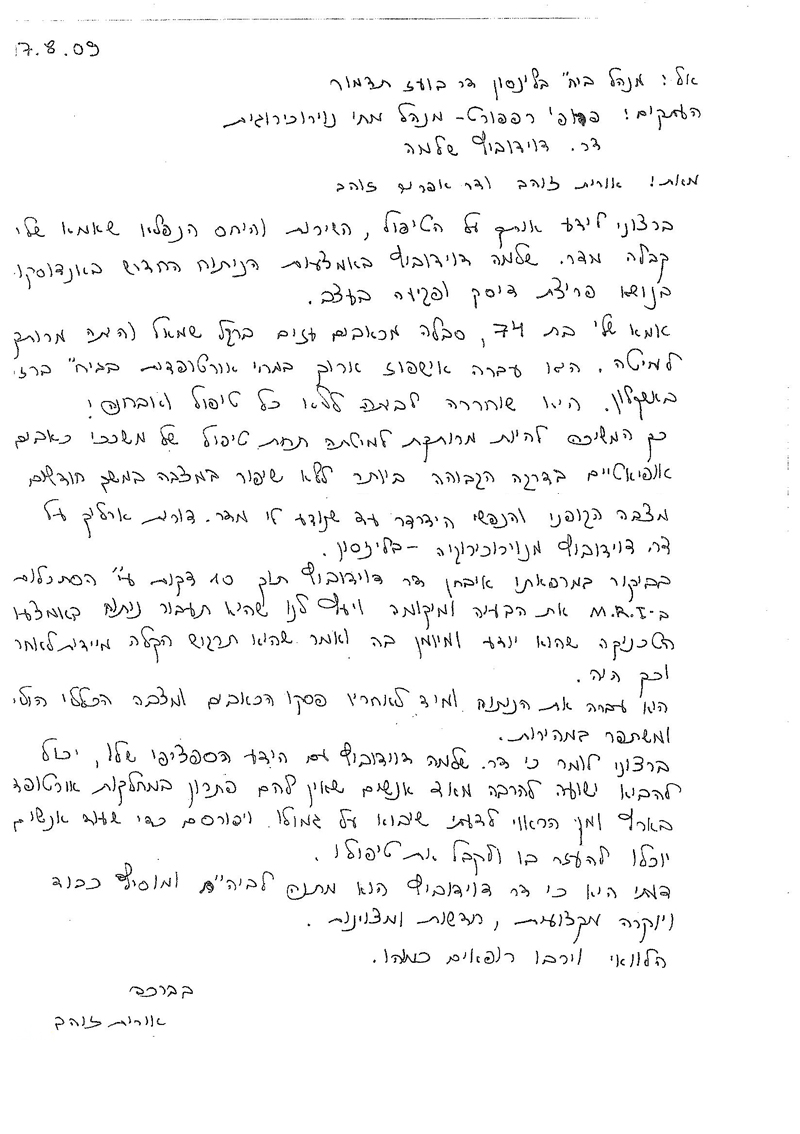 17.8.09
אל: מנהל ביה" בלינסון דר בועז תדמור
העתקים: פרופ' רפפורט - מנהל מח' נוירוכירוגית
דר. דוידוביץ שלמה
מאת: אורית זוהב ודר אפרים זוהב
ברצוני לידע אותך על הטיפול, השירות והיחס הנפלא שאמא שלי
קבלה מדר. שלמה דוידוביץ באמצעות הניתוח החדש באנדוסקו
בנושא פריצת דיסק ופגיעה בעצב.
אמא שלי בת 74, סבלה מכאבים עזים ברגל שמאל והיתה מרותק
למיטה. היא עברה אישפוז ארוך במח' אורטופדית בביה" ברזי
באשקלון. היא שוחררה לביתה ללא כל טיפול ואובחנה!
כך המשיכה להיות מרותקת למיטתה תחת טיפול של משככי כאבים
אופיאטיים בדרגה הגבוהה ביותר ללא שיפור במצבה במשך חודשים
מצבה הגופני והנפשי הידרדר עד שנודע לי מדר. דורית ארליך על
דר. דוידוביץ מנוירוכירוגיה - בלינסון.
בביקור במרפאתו איבחן דר דוידוביץ תוך 10 דקות ע"י הסתכלות
ב-M.R.I את הבעיה ומיקומה ויעץ לנו שהיא תעבור ניתוח באמצעו
הטכניקה שהוא יודע ומיומן בה ואמר שהיא תרגיש הקלה מיידית לאחר
וכך היה.
היא עברה את הניתוח ומיד לאחריו פסקו הכאבים ומצבה הכללי הולי
ומשתפר במהירות.
ברצוני לומר כי דר. שלמה דוידוביץ עם הידע הספציפי שלו, יכול
להביא ישועה להרבה מאוד אנשים שאין להם פתרון במחלקות אורטופד
בארץ ומן הראוי לדעתי שיבוא על גמולו. ויפורסם כדי שעוד אנשים
יוכלו להעזר בו ולקבל את טיפולו.
דעתי היא כי דר דוידוביץ הוא מתנה לביה"ח ומוסיף כבוד
ויוקרה מקצועית, חדשנות ומצוינות.
הלוואי וירבו רופאים כמוהו.
בברכה
אורית זוהב